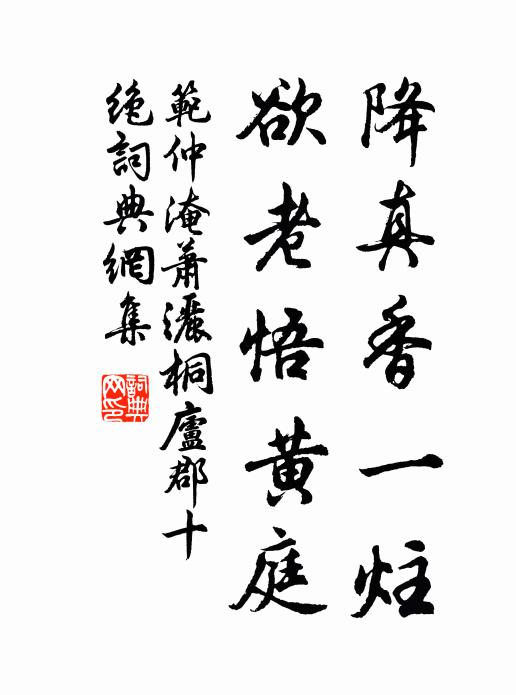 降真香一炷
欲老悟黄庭
範仲淹蕭灑桐廬郡十
絶詞典網集
詞典
网印